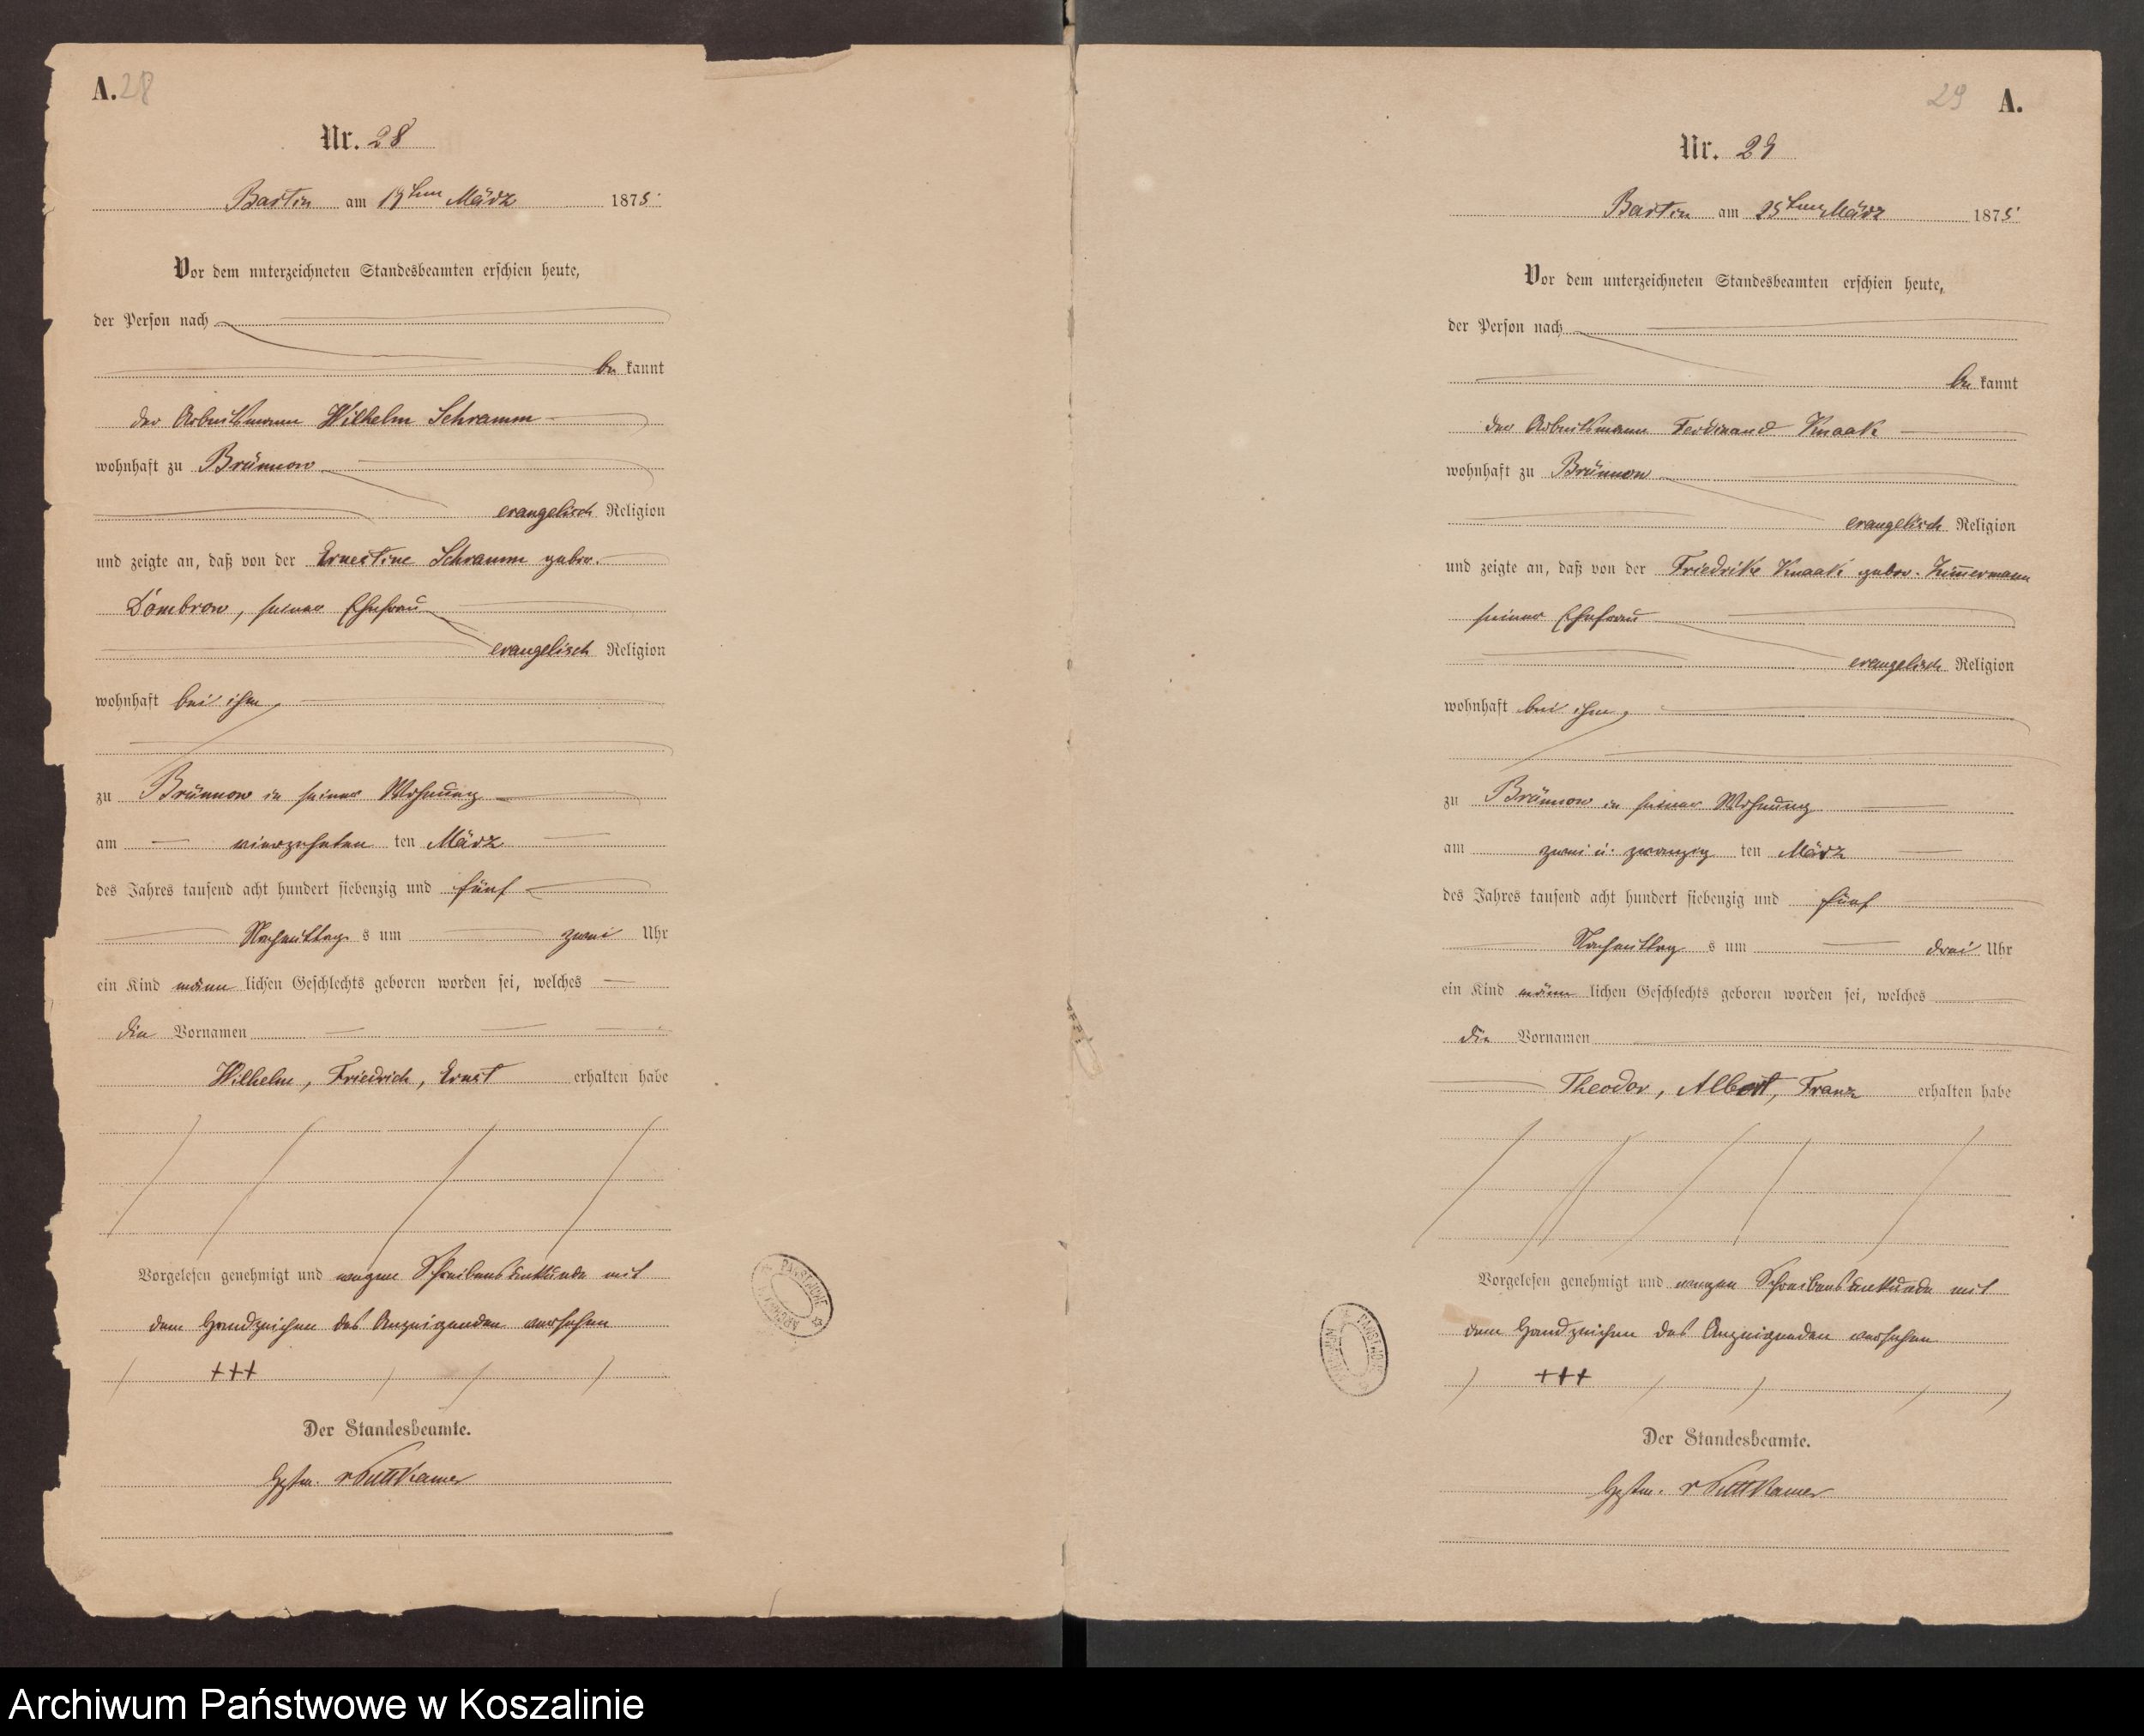 A. 28
Nr. 28
Bartin am 19ten März 1875
Vor dem unterzeichneten Standesbeamten erschien heute,
der Person nach
be kannt
der Arbeitsmann Wilhelm Schramm
wohnhaft zu Brünnow
evangelisch Religion
und zeigte an, daß von der Ernestine Schramm gebor.
Dömbrow, seiner Ehefrau
evangelisch Religion
wohnhaft bei ihm,
zu Brünnow in seiner Wohnung
am vierzehnten ten März
des Jahres tausend acht hundert siebenzig und fünf
Nachmittag s um zwei Uhr
ein Kind männ lichen Geschlechts geboren worden sei, welches
die Vornamen
Wilhelm, Friedrich, Ernst erhalten habe
Vorgelesen genehmigt und wegen Schreibensunkunde mit
dem Handzeichen des Anzeigenden versehen
+++
Der Standesbeamte.
v Puttkamer
ARCHIWUM PAŃSTWOWE
29 A.
Nr. 29
Bartin am 25ten März 1875
Vor dem unterzeichneten Standesbeamten erschien heute,
der Person nach
be kannt
der Arbeitsmann Ferdinand Knaak
wohnhaft zu Brünnow
evangelisch Religion
und zeigte an, daß von der Friedrike Knaak gebor. Zimmermann
seiner Ehefrau
evangelisch Religion
wohnhaft bei ihm,
zu Brünnow in seiner Wohnung
am zwei u. zwanzig ten März
des Jahres tausend acht hundert siebenzig und fünf
Nachmittag s um drei Uhr
ein Kind männ lichen Geschlechts geboren worden sei, welches
die Vornamen
Theodor, Albert, Franz erhalten habe
Vorgelesen genehmigt und wegen Schreibensunkunde mit
dem Handzeichen des Anzeigenden versehen
+++
Der Standesbeamte.
v Puttkamer
ARCHIWUM PAŃSTWOWE
Archiwum Państwowe w Koszalinie